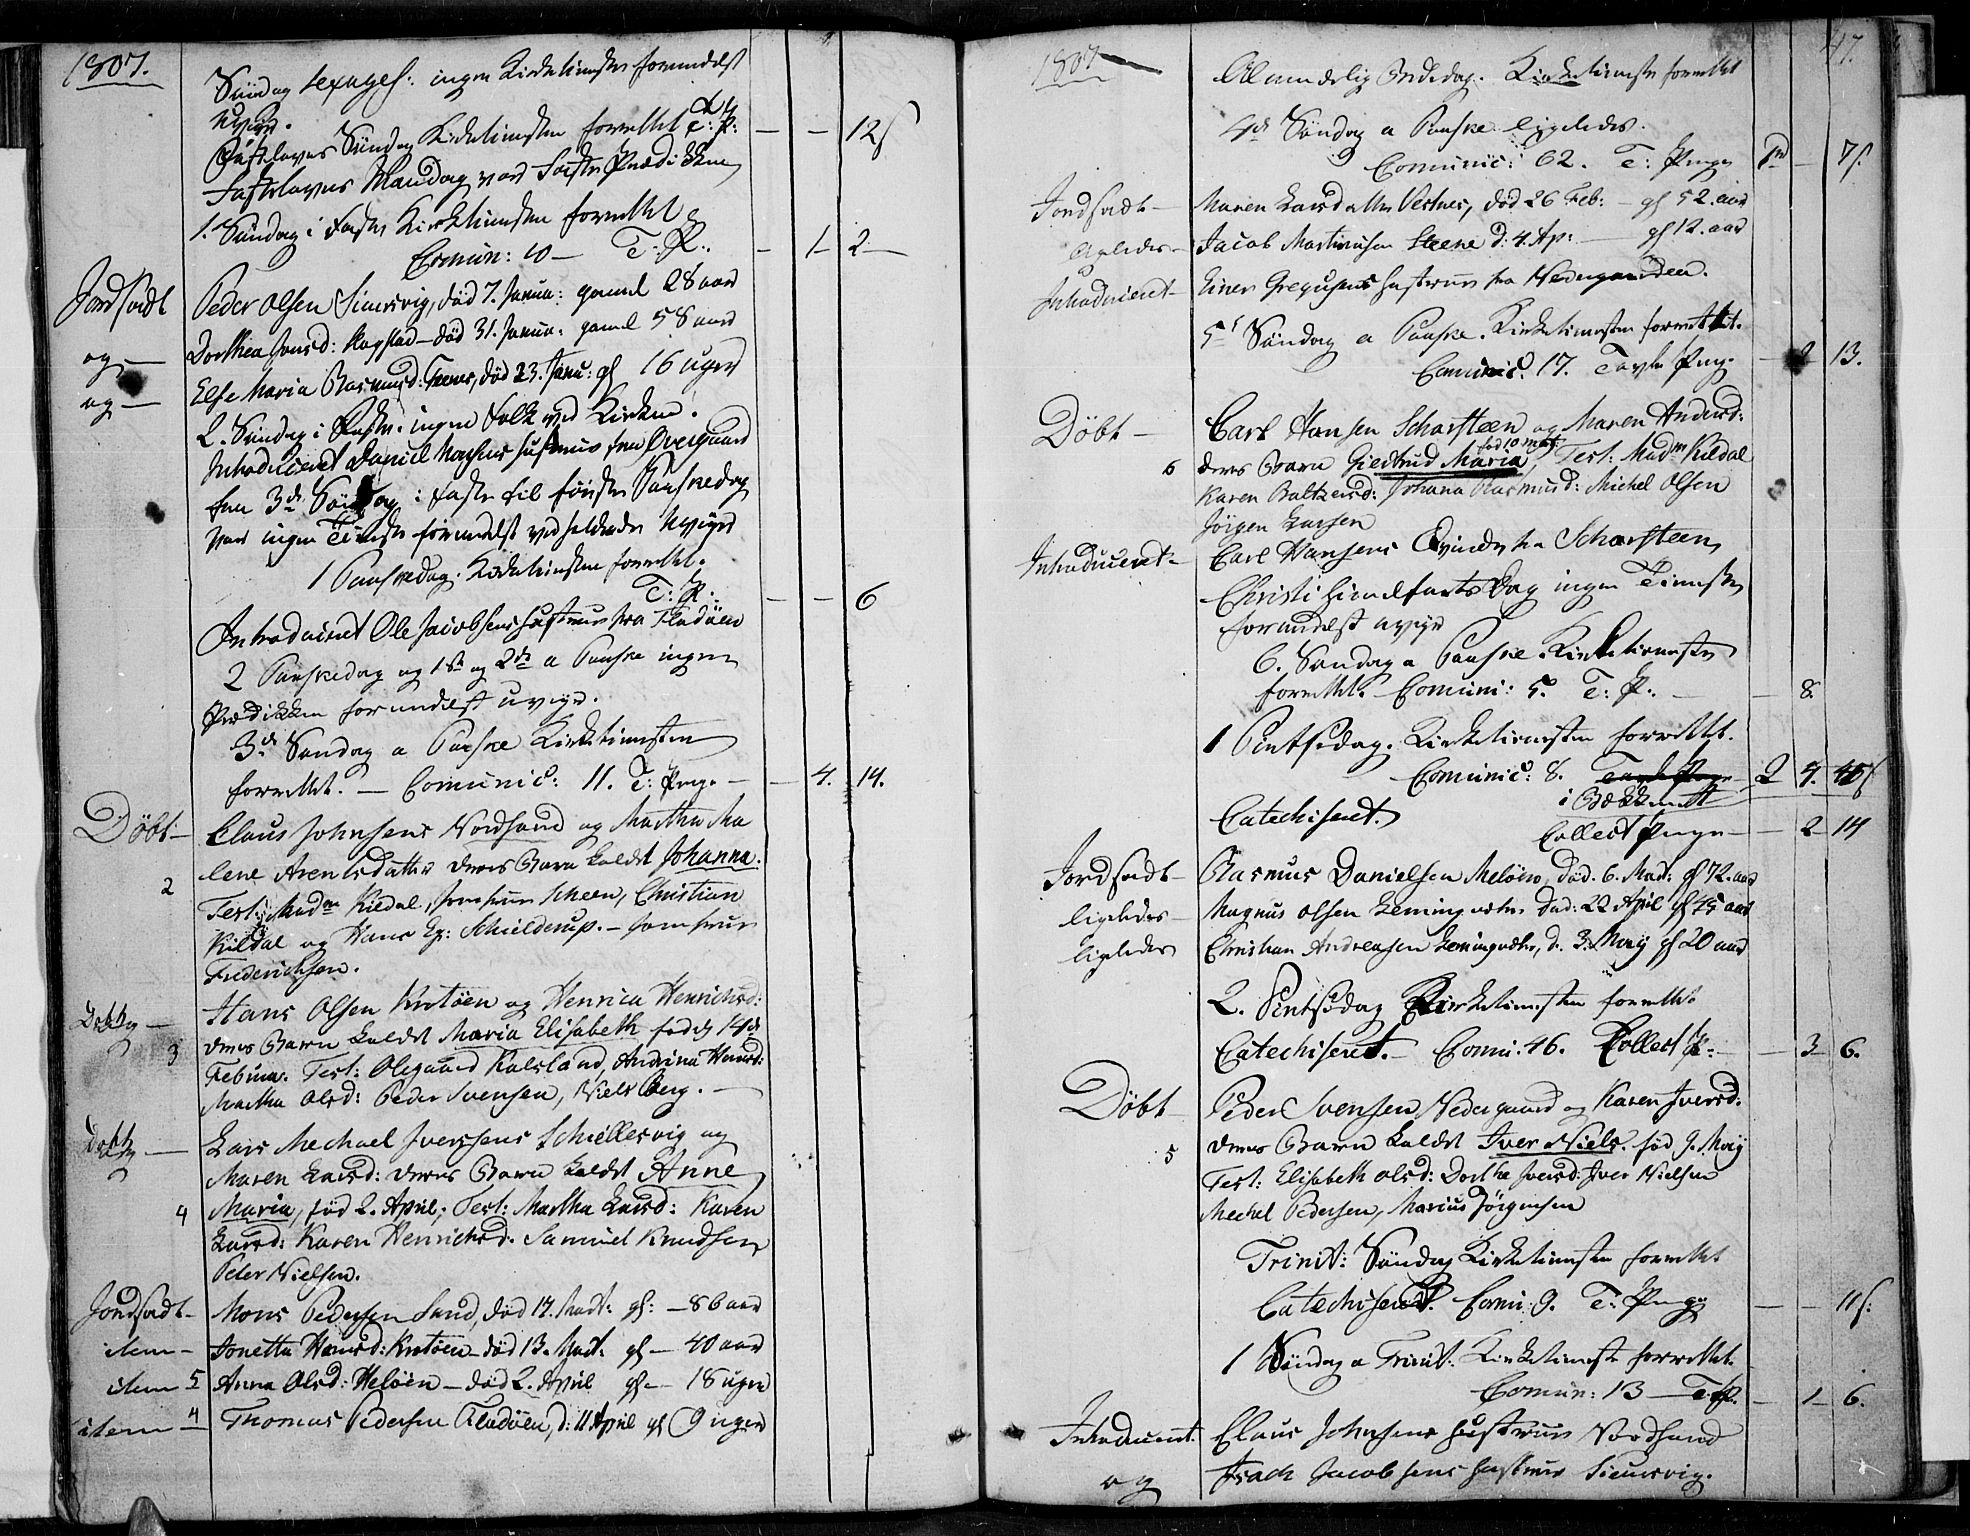 1807.
Søndag sexages: ingen Kirketieneste formedelst
uveyr.
Fastelavns Søndag Kirketienesten forrettet T: P: — — 12 s
Fastelavns Mandag var første Prædikken
1. Søndag i Faste Kirketienesten forrettet
Comun: 10 — T: P: — 1 — 2 —
Jordfæstet Peder Olsen Simesvig, død 7. Janua: gaml 28 aar
og — Dorthea Jonsd: Kogstad — død 31. Janua: gaml 58 aar
og — Else Maria Rasmusd: Teenes, død 23. Janu: gl 16 uger
2. Søndag i Faste. ingen Folk ved Kirken.
Introduceret Daniel hustrue fra Overgaard
fra 3de Søndag i faste til første Paaskedag
var ingen Tieneste formedelst vedholdende uveyr
1 Paaskedag. Kirketienesten forrettet.
T: P: — — 6
Introduceret Ole Jacobsens hustrue fra Fladöen
2 Paaskedag og 1ste og 2de a Paaske ingen
Prædikken formedelst uveyr.
3de Søndag a Paaske Kirketienesten
forrettet. — Comunic: 11. T: Penge — — 4. 14.
Döbt — Claus Johnsens Nordsand og Martha Ma
lene Arentsdatter deres Barn kaldet Johanna.
2 Test: Madm Kildal, Jomfrue Scheen, Christian
Kildal og Hans Eg: Schielderup. — Jomfrue
Friderichsen.
Döbt — Hans Olsen Kiotöen og Henrica Henrichsd:
3 deres Barn kaldet Maria Elisabeth fød d. 14de
Februa. Test: Olegaard Kalsland, Andrina Hansd:
Martha Olsd: Peder Svensen, Niels Berg. —
Döbt — Lars Mechael Iversens Schiellesvig og
Maren Larsd: deres Barn kaldet Anne
4 Maria, fød 2. April; Test: Martha Larsd: Karen
Larsd: Karen Henrichsd: Samuel Knudsen
Peter Nielsen.
Jordfæstet — Mons Pedersen Sand, død 17. Mart: gl: — 86 aar
item — Jonetta Hansd: Kiotöen — død 13. Mart: gl — 40 aar
item 5 Anna Olsd: Meløen — død 2. April gl — 18 uger
item — 4 Thomas Pedersen Fladöen, d: 11 April gl 9 uger
1807 —
47.
Almindelig Bededag. Kirketieneste forrettet
4de Søndag a Paaske ligeledes.
Comunic: 62. T: Penge — 7 s.
Jordfæstet — Maren Larsdatter Vestnes, død 26 Feb: — gl 52. aar
ligeledes — Jacob Martinusen Steene d: 4. Ap: — gl 12. aar
Introduceret — Einer Gregusens hustrue fra Nedergaarden.
5te Søndag a Paaske. Kirketienesten forrettet.
Comunic: 17. Tavle Peng. — 13.
Döbt — Carl Hansen Scharsteen og Maren Andersd:
fød 10 Mart.
6 deres Barn Giedtrud Maria, Test: Madm Kildal
Karen Baltzersd: Johana Rasmusd: Michel Olsen
Jörgen Larsen
Introduceret — Carl Hansens Qvinde fra Scharsteen
Christi Himmelfarts Dag ingen Tieneste
formedelst uveyr
6. Søndag a Paaske. Kirketieneste
forrettet. Comuni: 5. T: P: — — 8.
1 Pintsedag. Kirketienesten forrettet.
Comunic: 8. Tavle Penge — 2 4.
i Bækkenet
Catechiseret. Collect Penge — — 2 14
Jordfæstet — Rasmus Danielsen Meløen, død. 6. Mart: gl 72. aar
ligeledes — Magnus Olsen død: 22 April gl 45 aar
ligeledes Christian Andreasen d. 3. May gl 20 aar
2. Pintsedag Kirketienesten forrettet
Catechiseret. — Comu: 46. Collect P: — — 3 — 6.
Döbt — Peder Svensen Nedergaard og Karen Iversd:
5 deres Barn kaldet Iver Niels. fød 9. May
Test: Elisabeth Olsd: Dorthe Iversd: Iver Nielsen
Mechel Pedersen, Marius Jörgensen
Trinit: Søndag Kirketieneste forrettet
Catechiseret. Comu: 9. T: Penge — — 11 s.
1 Søndag a Trinit: Kirketieneste forrettet.
Comun: 13 — T: P. — 1 — 6.
Introducerit. Claus Johnsens hustrue Nordsand
og Isach Jacobsens hustrue Simesvig.